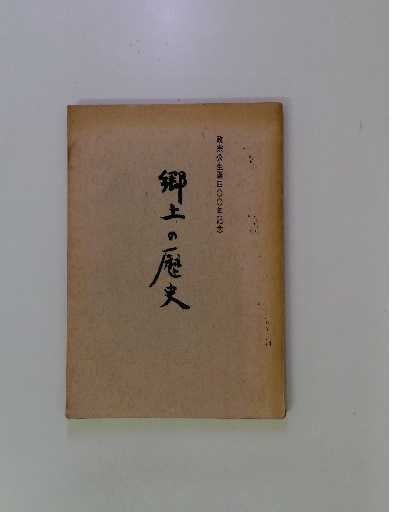 政宗公生誕四〇〇年記念
郷土の歴史